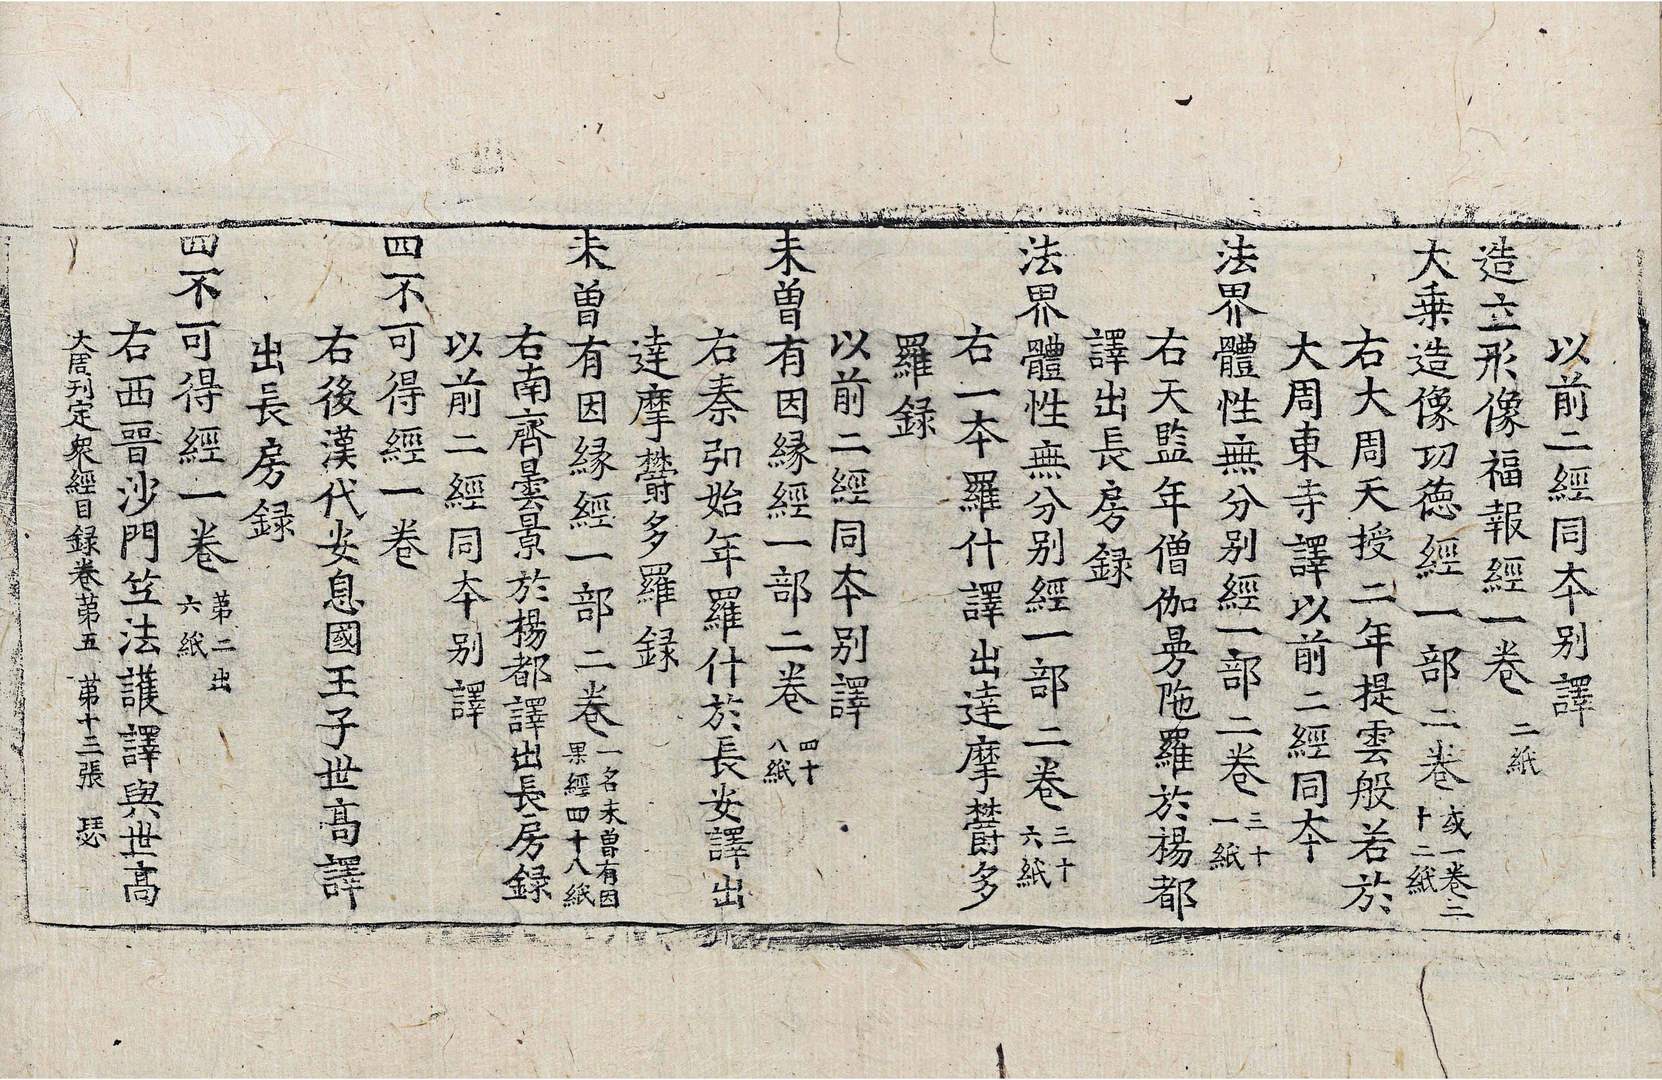 以前二經同本别譯
造立形像福報經一卷 二紙
大乗造像功徳經一部二卷 或一卷二十二紙
右大周天授二年提雲般若於
大周東寺譯以前二經同本
法界體性無分别經一部二卷 三十一紙
右天監年僧伽㬅陁羅於楊都
譯出長房録
法界體性無分别經一部二卷 三十六紙
右一本羅什譯出達摩欝多
羅録
以前二經同本别譯
未曽有因縁經一部二卷 四十八紙
右秦弘始年羅什於長安譯出
達摩欝多羅録
未曽有因縁經一部二卷 一名未曽有因果經四十八紙
右南齊曇景於楊都譯出長房録
以前二經同本别譯
四不可得經一卷
右後漢代安息國王子世高譯
出長房録
四不可得經一卷 第二出六紙
右西晉沙門竺法護譯與世高
大周刊定衆經目録卷第五 第十三張 瑟